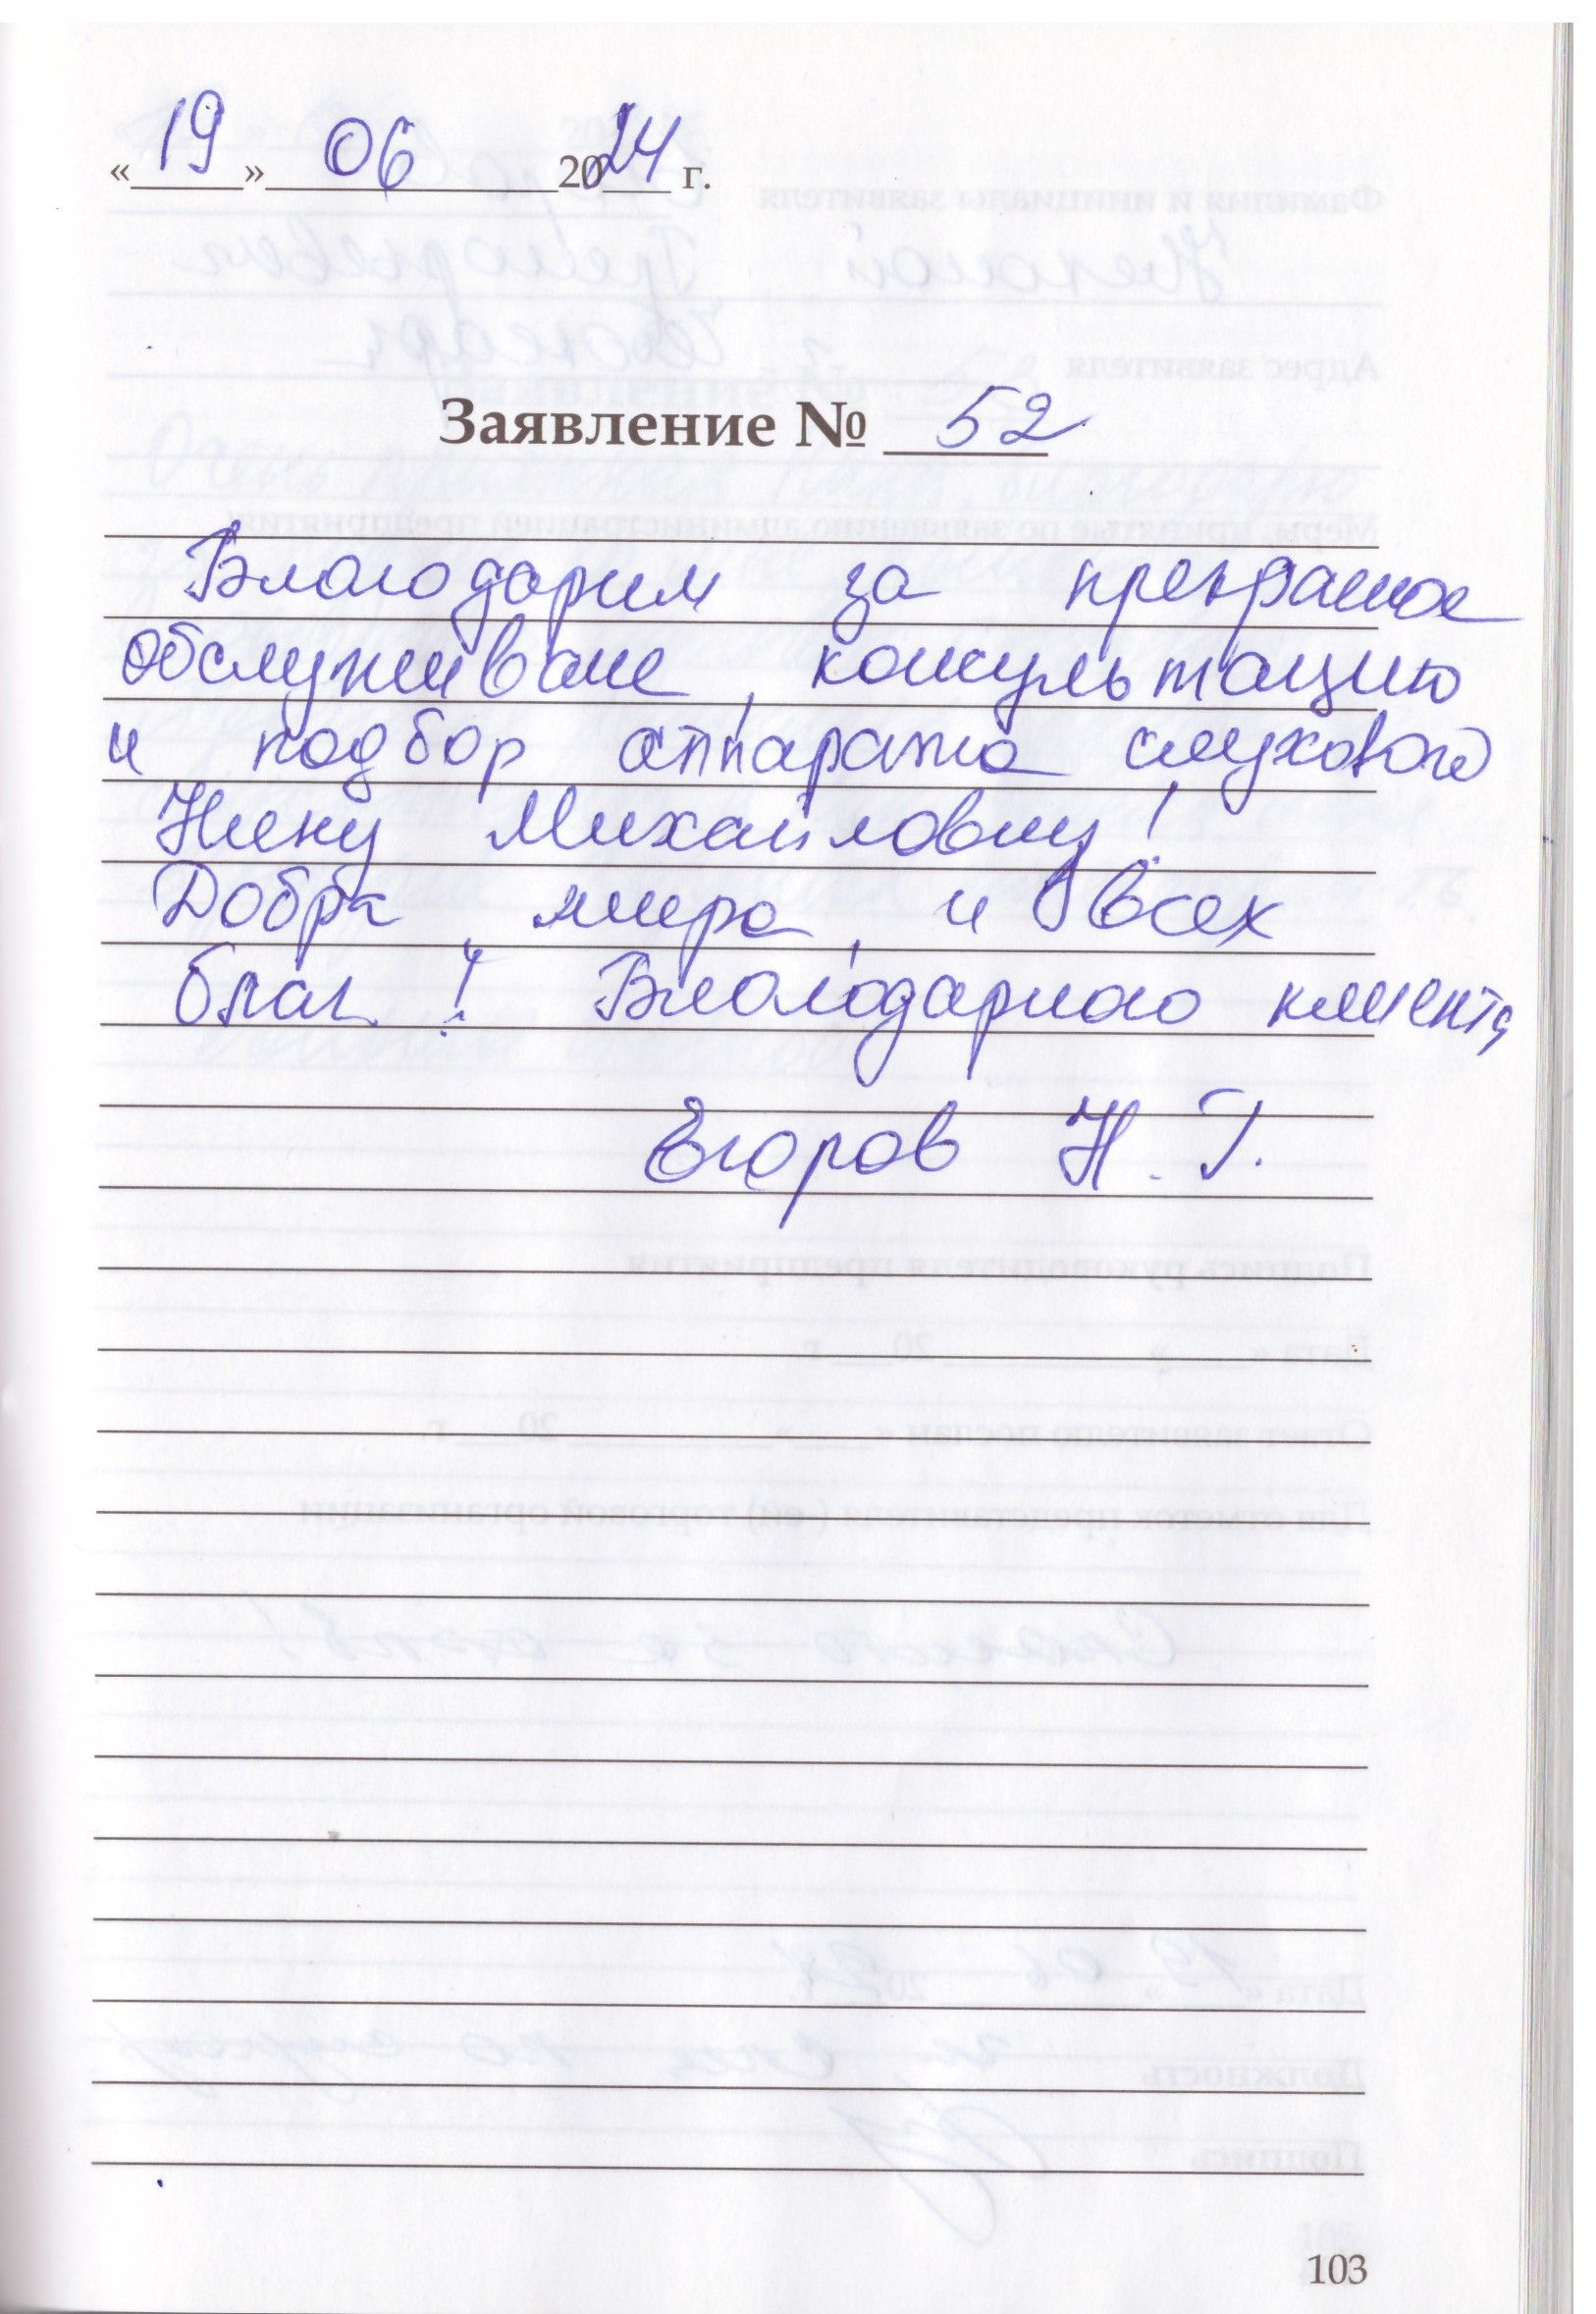 «19» 06 2024 г.
Заявление № 52
Благодарим за прекрасное
обслуживание, консультацию
и подбор аппарата слухового
Нину Михайловну!
Добра, мира, и всех
благ! Благодарного клиента
Егоров Н. Г.
103